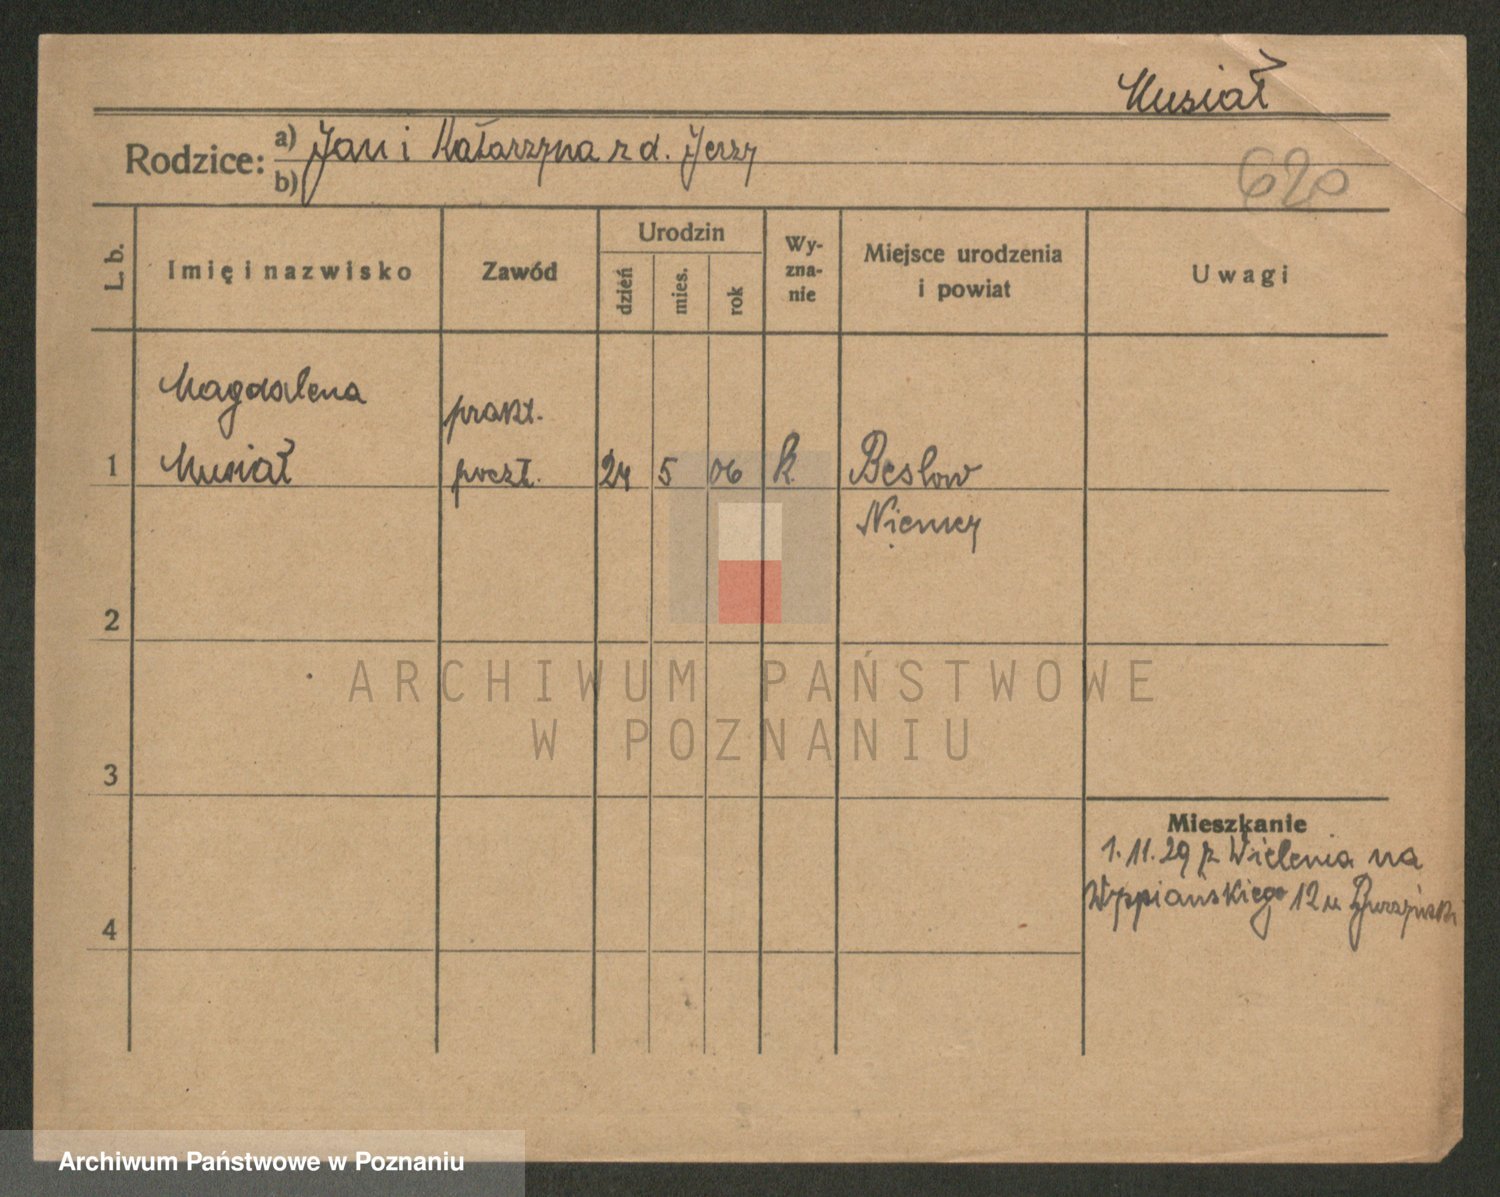 Musiał
Rodzice: a) Jan i Katarzyna z d. Jerzy
b)
620
L. b.
Imię i nazwisko
Zawód
Urodzin
dzień
mies.
rok
Wy-
zna-
nie
Miejsce urodzenia
i powiat
Uwagi
Magdalena
prakt.
1 Musiał poczt. 24 5 06 k. Beslow
Niemcy
2
ARCHIWUM PAŃSTWOWE
W POZNANIU
3
Mieszkanie
1.11.29 z Wielenia na
Wyspiańskiego 12 u
4
Archiwum Państwowe w Poznaniu